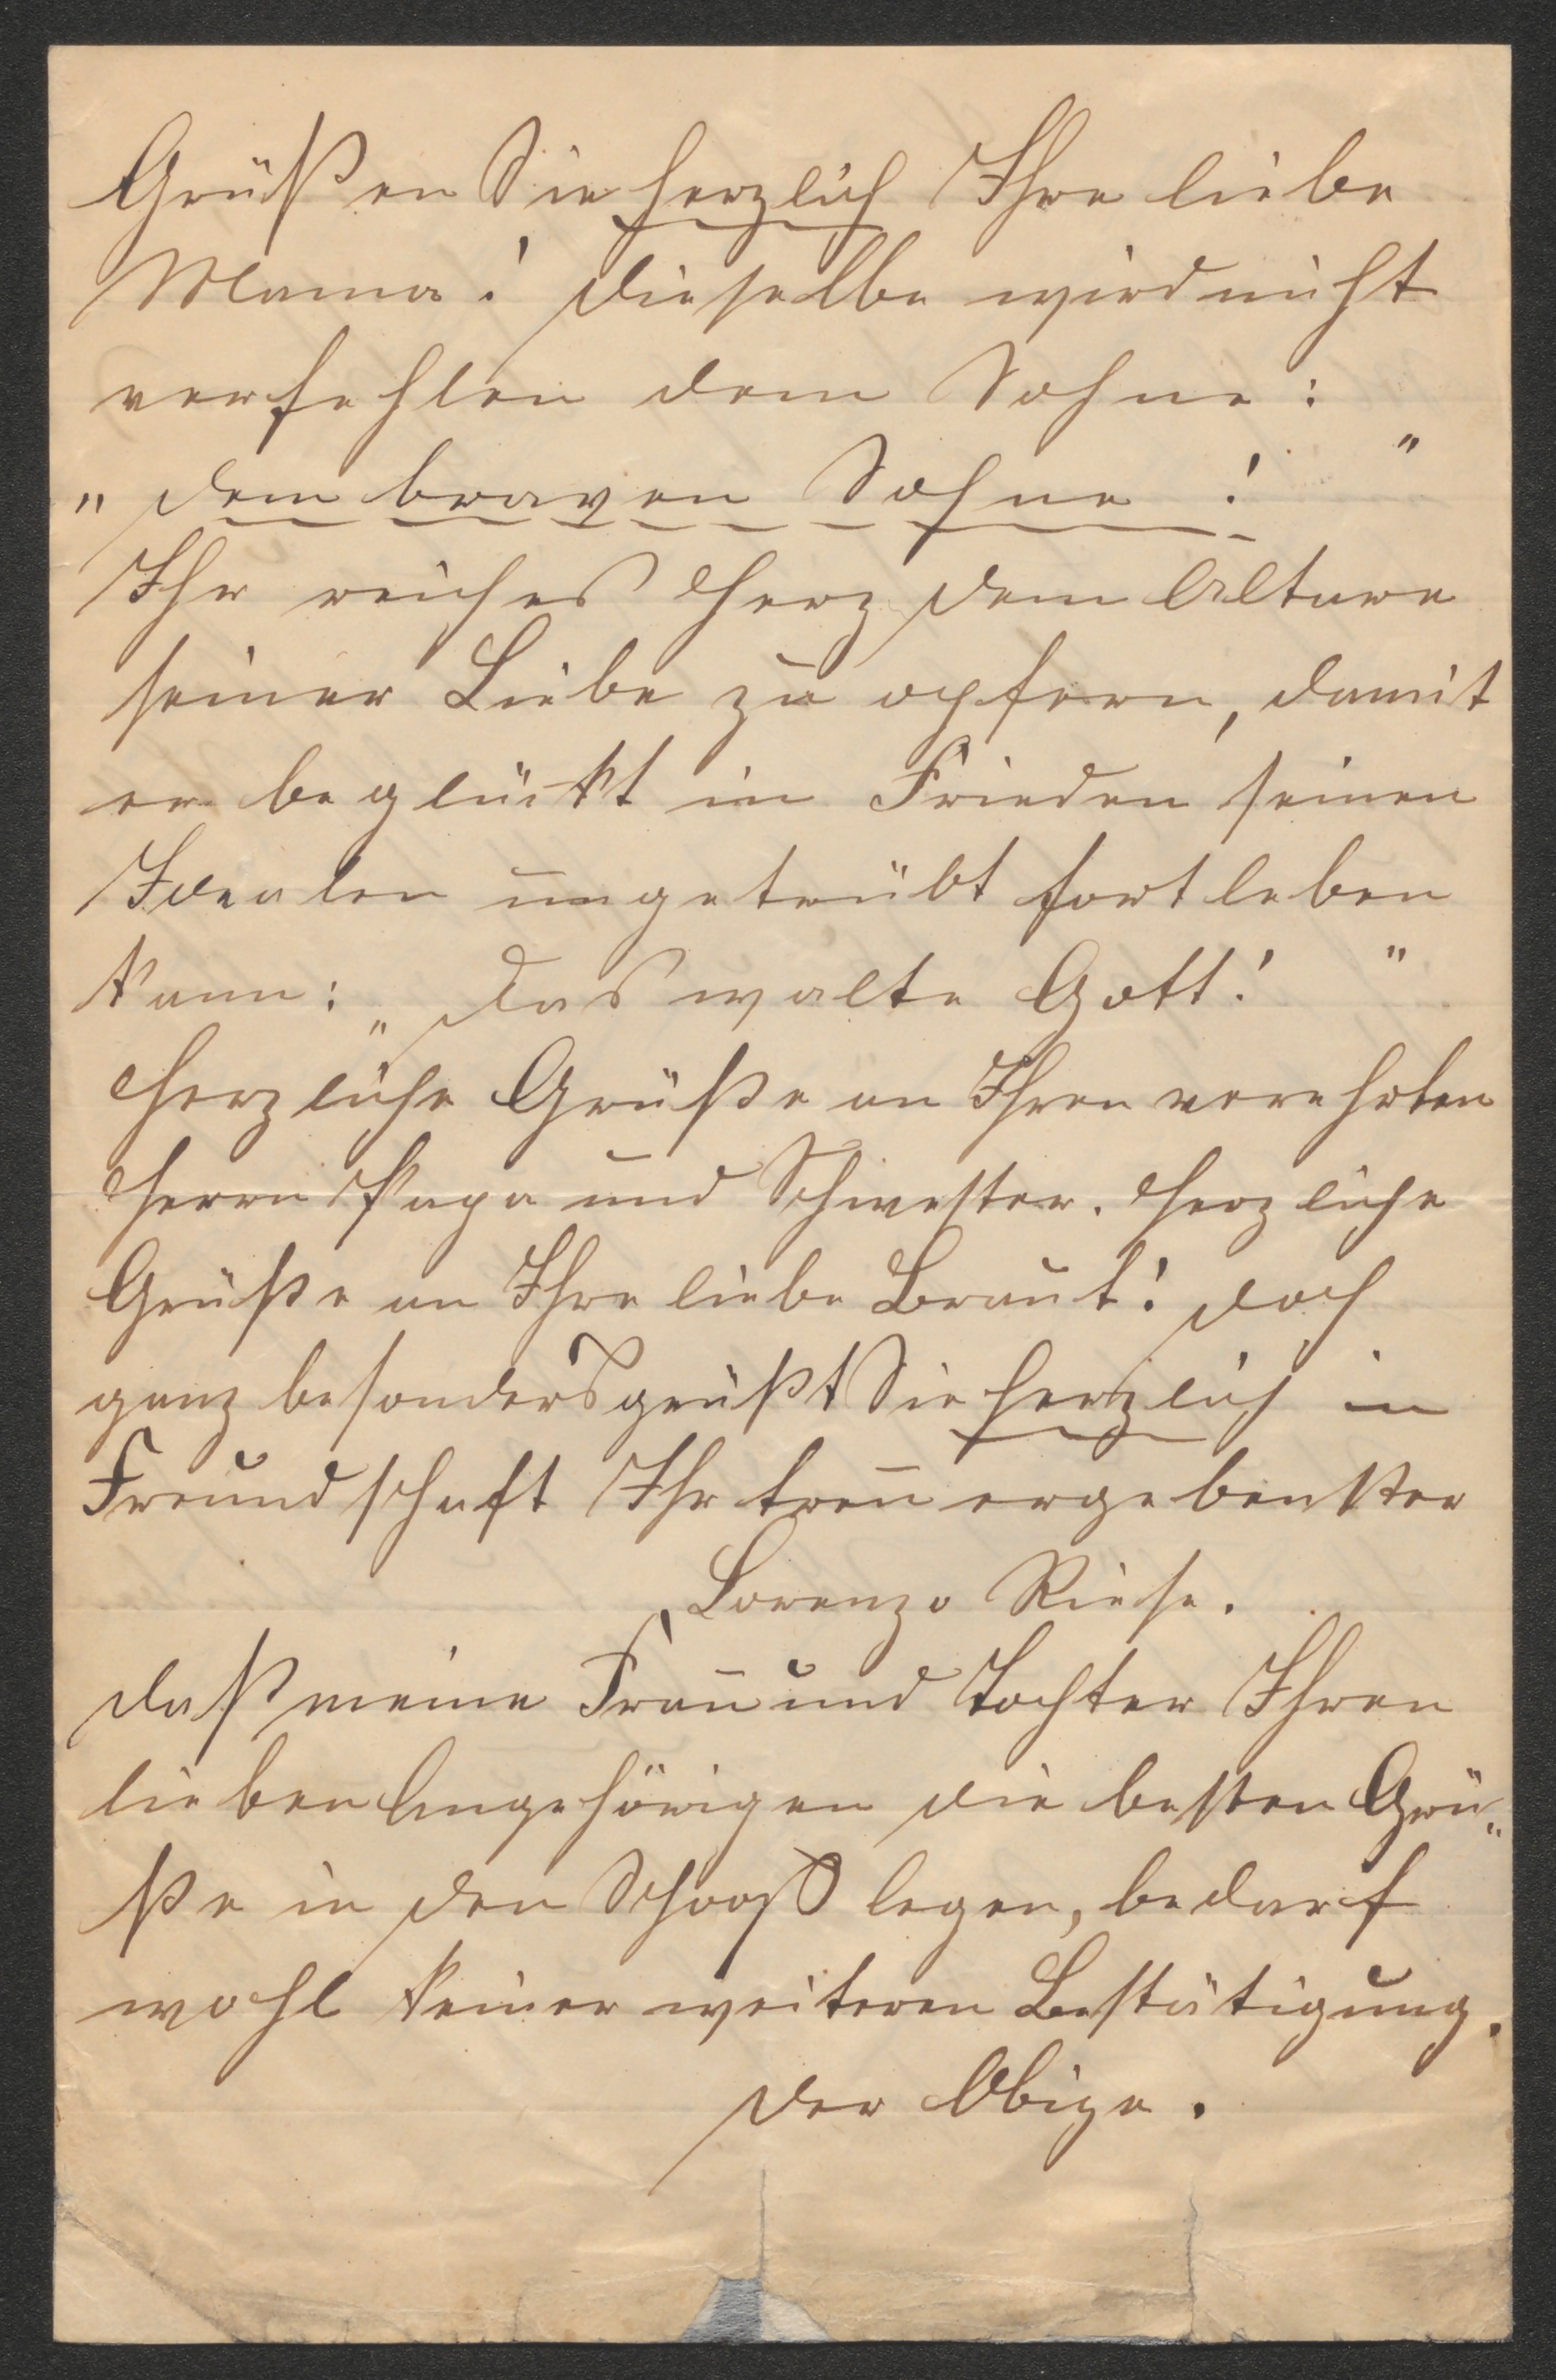 Grüßen Sie herzlich Ihre liebe
Mama! dieselbe wird nicht
verfehlen dem Sohne:
„dem braven Sohne!"
Ihr reiches Herz dem Altare
seiner Liebe zu opfern, damit
er beglückt im Frieden seinen
Idealen ungetrübt fortleben
kann: „das walte Gott!"
Herzliche Grüße an Ihren verehrten
Herrn Papa und Schwester. Herzliche
Grüße an Ihre liebe Braut! doch
ganz besonders grüßt Sie herzlich in
Freundschaft Ihr treu ergebenster
Lorenzo Riese.
daß meine Frau und Tochter Ihren
lieben Angehörigen die besten Grü„
ße in den Schooß legen, bedarf
wohl keiner weiteren Bestätigung.
der Obige.